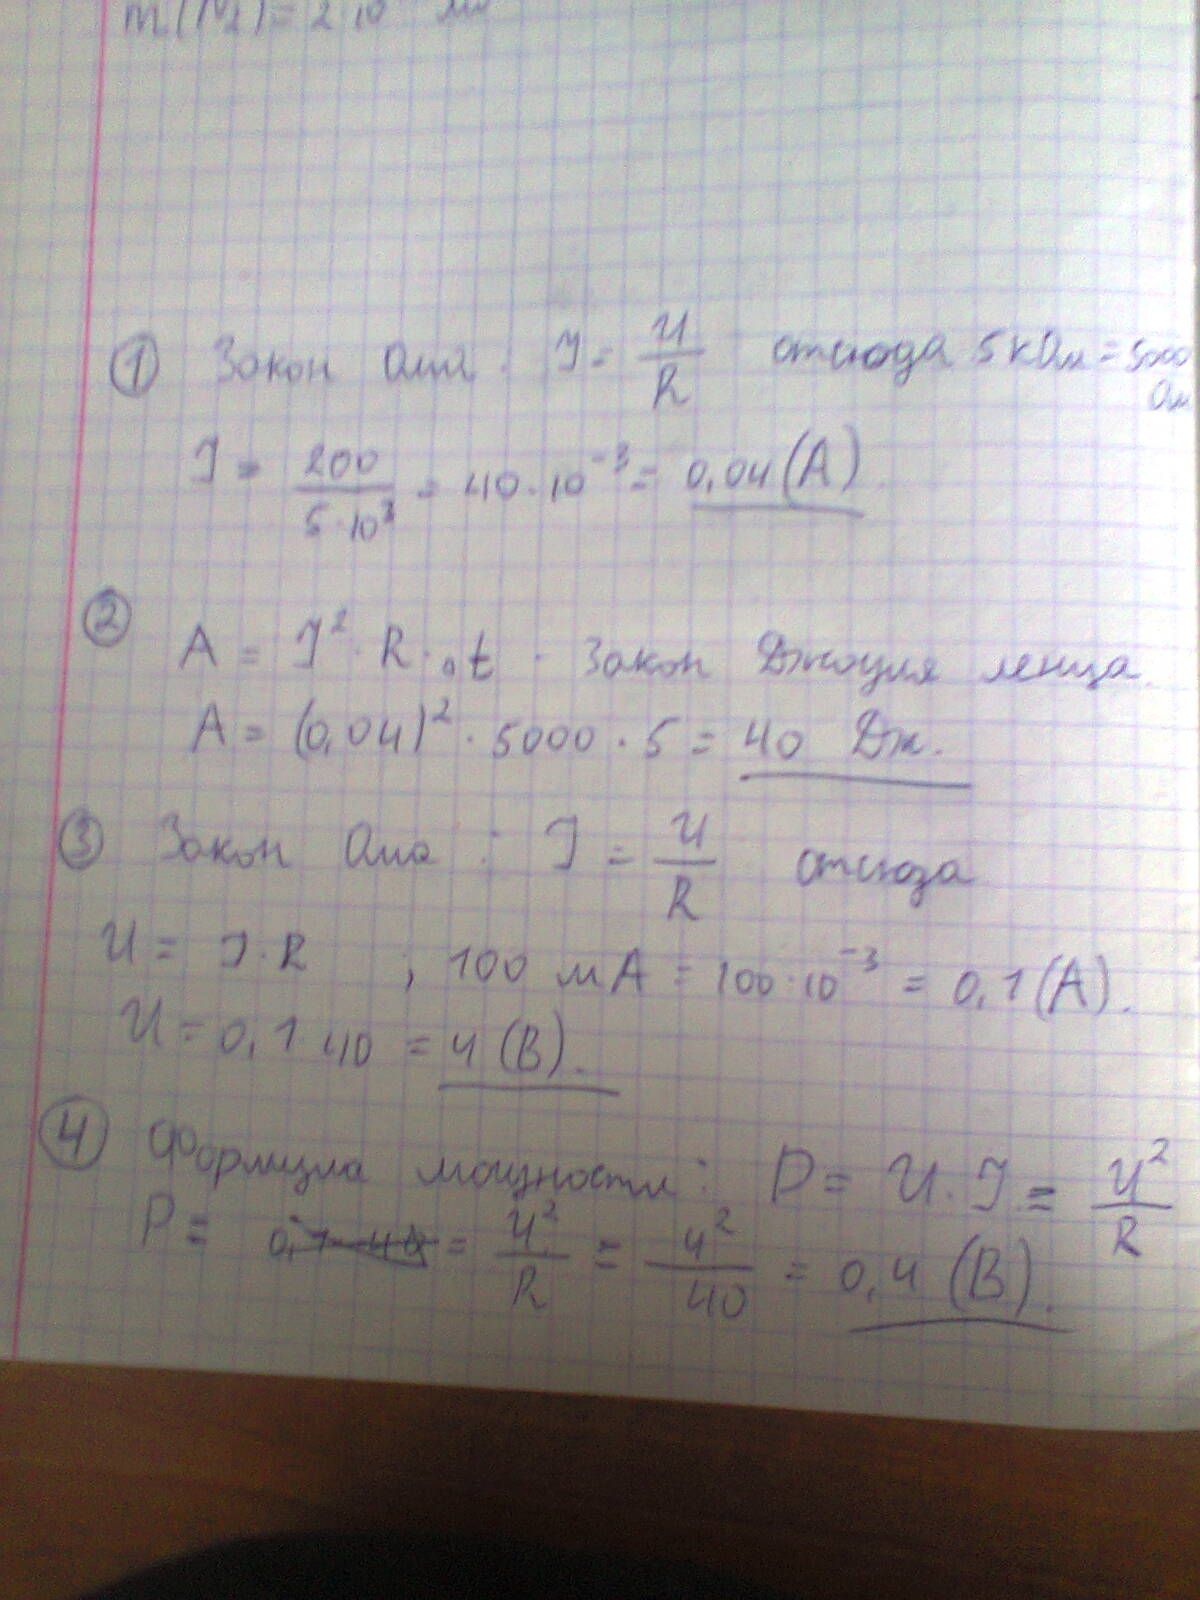 m(N₂) = 2 · 10
① Закон Ома: I = U/R отсюда 5 кОм = 5000 Ом
I = 200/(5·10³) = 40·10⁻³ = 0,04 (А).
② A = I² · R · t - Закон Джоуля ленца.
A = (0,04)² · 5000 · 5 = 40 Дж.
③ Закон Ома: I = U/R отсюда
U = I · R ; 100 мА = 100·10⁻³ = 0,1 (А).
U = 0,1 40 = 4 (В).
④ Формула мощности: P = U · I = U²/R
P = 0,1 40 = U²/R = 4²/40 = 0,4 (В).